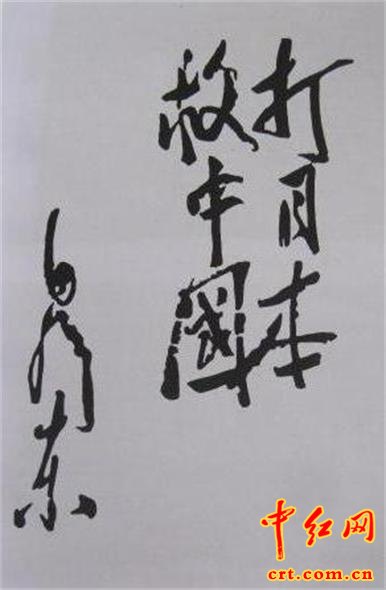 打日本
救中國
毛泽东
中红网
crt.com.cn